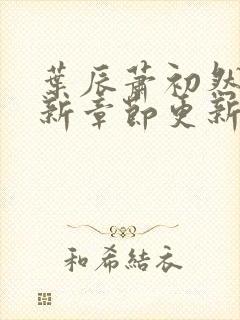 葉辰蕭初然
新章節更新
和希結衣